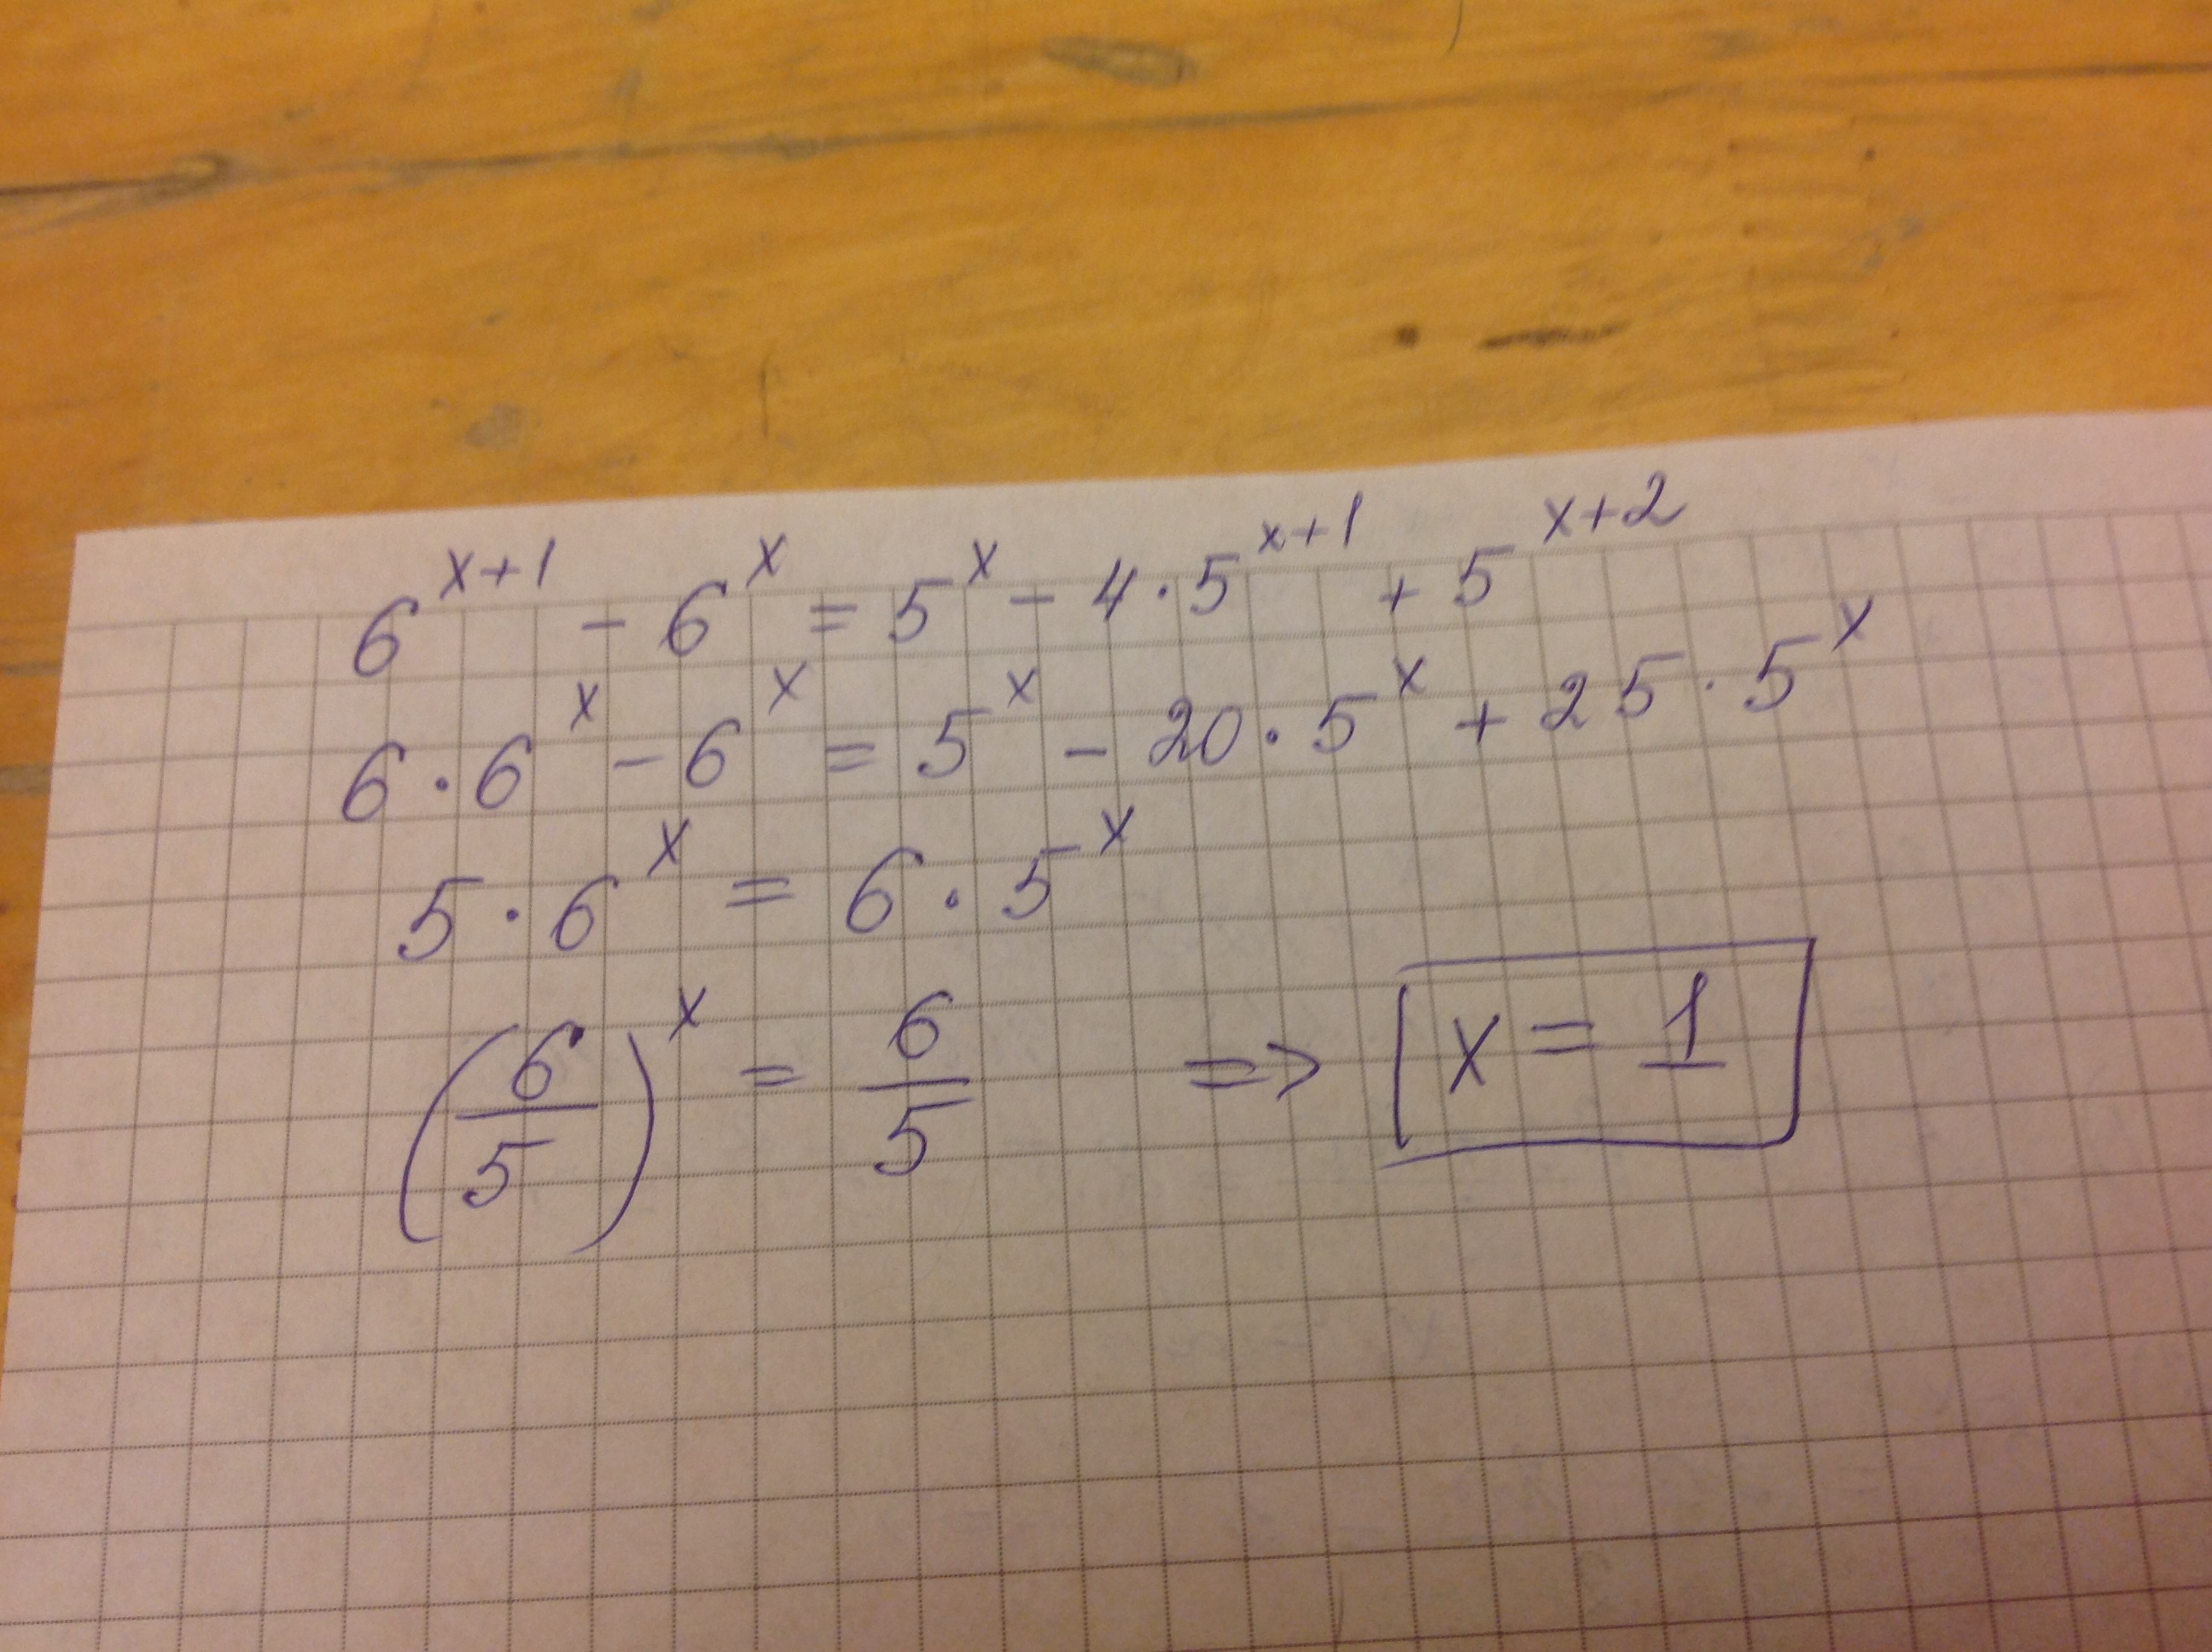 6^{x+1} - 6^x = 5^x - 4·5^{x+1} + 5^{x+2}
6·6^x - 6^x = 5^x - 20·5^x + 25·5^x
5·6^x = 6·5^x
(6/5)^x = 6/5 => x = 1